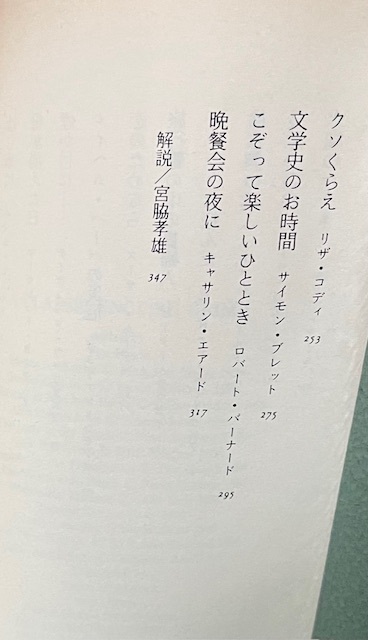 クソくらえ リザ・コディ 253
文学史のお時間 サイモン・ブレット 275
こぞって楽しいひととき ロバート・バーナード 295
晩餐会の夜に キャサリン・エアード 317
解説／宮脇孝雄 347